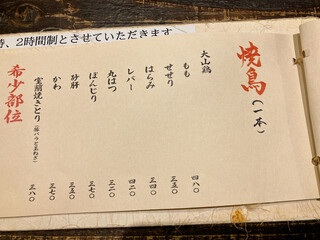 、2時間制とさせていただきます
焼鳥(一本)
大山鶏
もも 四八〇
せせり 三五〇
はらみ 三四〇
レバー 三二〇
丸はつ 三二〇
ぼんじり 三七〇
砂肝 三五〇
かわ 三七〇
室蘭焼きとり(豚バラと玉ねぎ) 三八〇
希少部位